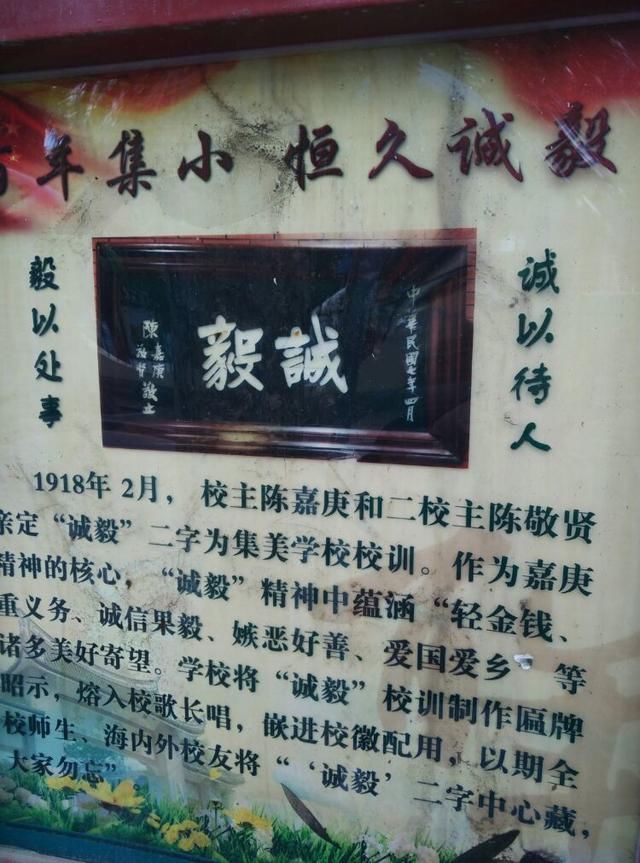 年集小 恒久誠毅
诚以待人
毅以处事
中華民國七年四月
誠毅
陳嘉庚
1918年2月，校主陈嘉庚和二校主陈敬贤
亲定“诚毅”二字为集美学校校训。作为嘉庚
精神的核心，“诚毅”精神中蕴涵“轻金钱、
重义务、诚信果毅、嫉恶好善、爱国爱乡”等
诸多美好寄望。学校将“诚毅”校训制作匾牌
昭示，熔入校歌长唱，嵌进校徽配用，以期全
校师生、海内外校友将“‘诚毅’二字中心藏，
大家勿忘”